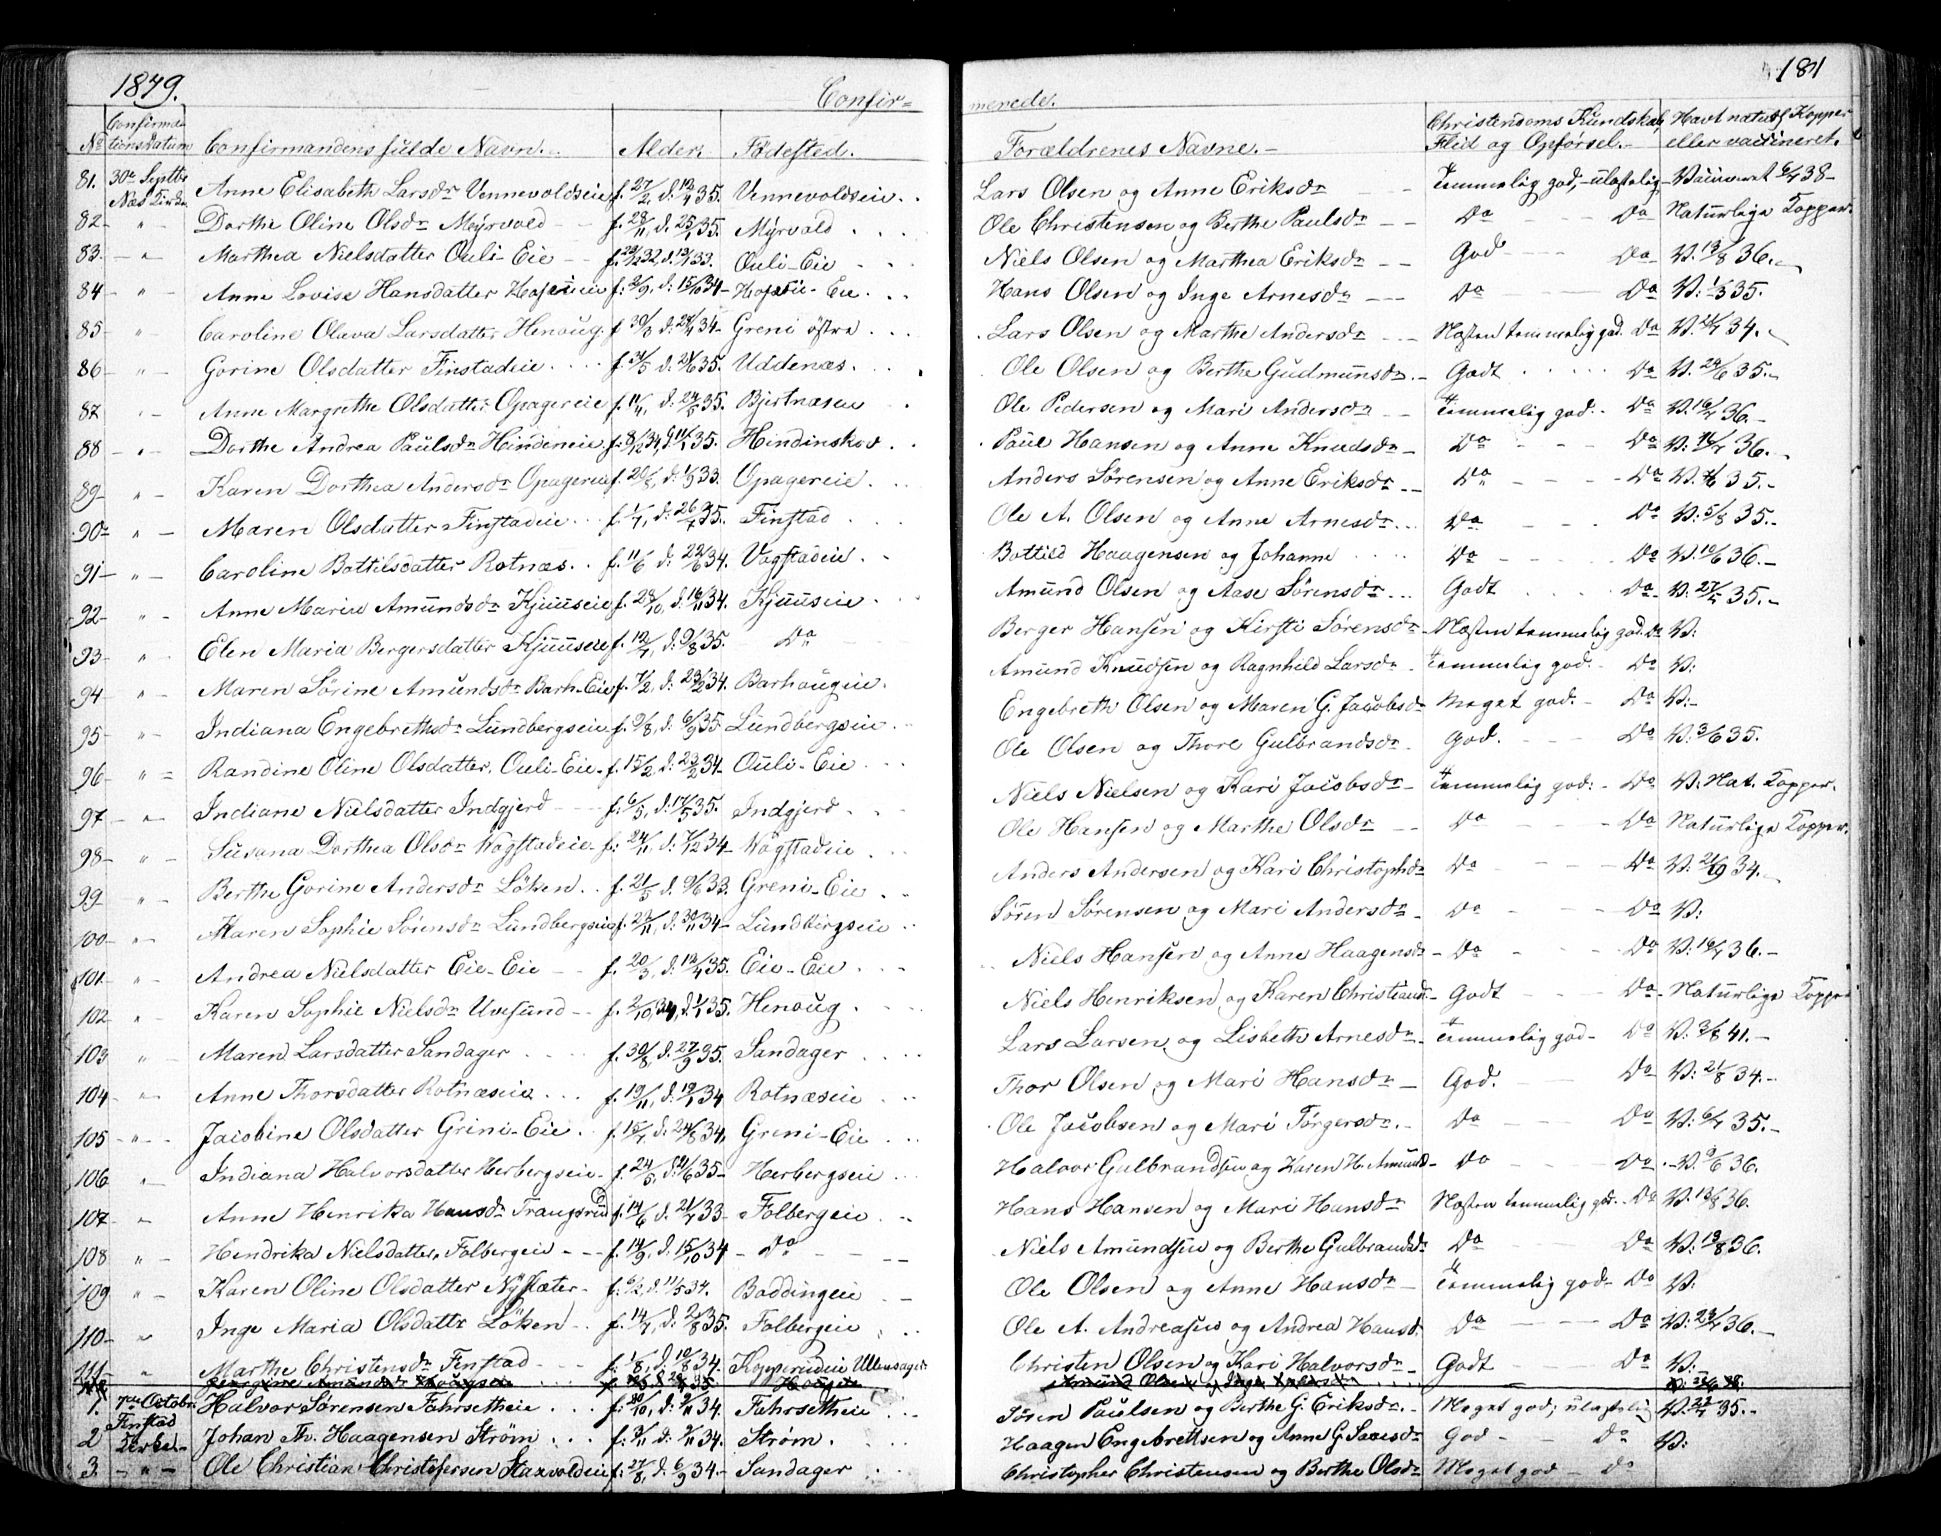 1849.
Confir-
merede.
181
No Confirmationsdatum Confirmandens fulde Navn. Alder. Fødested. Forældrenes Navne. Christendoms Kundskab, Flid og Opførsel. Havt naturl. Kopper eller vaccineret.
81. 30te Septbr Næs Kirke Anne Elisabeth Larsdr Vennevoldseie f. 27/2 d. 12/4 35. Vennevoldseie Lars Olsen og Anne Eriksdr Temmelig god, ulastelig Vaccineret 38
82 " Dorthe Oline Olsdr Myrvold f. 28/11 d. 25/1 35. Myrvold Ole Christensen og Berthe Paulsdr Do Do Naturlige Kopper.
83. " Marthea Nielsdatter Ouli-Eie 32 33. Ouli-Eie Niels Olsen og Marthea Eriksdr God Do V. 13/8 36.
84 " Anne Lovise Hansdatter d: 15/10 34 Hans Olsen og Inge Arnesdr Do Do V: 35.
85 " Caroline Olava Larsdatter Henoug f. 30/3 34 Greni østre Lars Olsen og Marthe Andersdr Næsten temmelig god. Do V. 34.
86 " Gorine Olsdatter Finstadeie 35. Uddenæs. Ole Olsen og Berthe Gudmunsdr Godt Do V. 24/6 35.
87 " Anne Margrethe Olsdatter Opagereie f. 11/4, d. 24/5 35. Bjertnæseie Ole Pedersen og Mari Andersdr Temmelig god. Do V. 16/7 36.
88 " Dorthe Andrea Paulsdr Hindeneie f. 8/12 34, d. 11/1 35. Hindinskov Paul Hansen og Anne Knudsdr Do Do V. 36.
89 " Karen Dorthea Andersdr Opagereie 33. Opagereie. Anders Sørensen og Anne Eriksdr Do Do V. 35.
90 " Maren Olsdatter Finstadeie f. 1/7, d: 26/7 35. Finstad Ole A. Olsen og Anne Arnesdr Do Do V: 5/8 35.
91 " Caroline Bottilsdatter Rotnæs. f. 11/6 d: 22/6 34. Vogstadeie Bottild Haagensen og Johanne Do Do V. 36.
92 " Anne Marie Amundsdr Kjuuseie f. 28/10, d. 16/11 34. Kjuuseie. Amund Olsen og Aase Sørensdr Godt Do V. 35.
93 " Elen Maria Bergersdatter Kjuuseie f. 12/7, d. 9/8 35. Do Berger Hansen og Kirsti Sørensdr Næsten temmelig god. Do V:
94 " Maren Sørine Amundsdr Barh.-Eie f. 7/2, d: 23/2 34. Barhougeie. Amund Knudsen og Ragnhild Larsdr Temmelig god. Do V:
95 " Indiana Engebrethsdr Lundbergseie d: 6/9 35 Lundbergseie Engebreth Olsen og Maren G. Jacobsdr Meget god. Do V:
96 " Randine Oline Olsdatter, Ouli-Eie f. 15/2, d. 23/2 34 Ouli-Eie Ole Olsen og Thore Gulbrandsdr God. Do V: 3/6 35.
97 " Indiane Nielsdatter Indgjerd f: 6/5, d: 17/5 35. Indgjerd Niels Nielsen og Kari Jacobsdr Temmelig god: Do V: Nat. Kopper.
98 " Susana Dorthea Olsdr Vogstadeie f: 24/11 d: 7/12 34 Vogstadeie Ole Hansen og Marthe Olsdr Do Do Naturlige Kopper.
99 " Berthe Gorine Andersdr Løken f. 21/5 d. 9/6 33. Greni-Eie Anders Andersen og Kari Christophdr Do Do V. 34.
100 " Maren Sophie Sørensdr Lundbergseie d: 30/11 34 Lundbergseie Søren Sørensen og Mari Andersdr Do Do V:
101. " Andrea Nielsdatter Eie-Eie f. 20/3, d: 12/4 35. Eie-Eie Niels Hansen og Anne Haagensdr Do Do V: 16/7 36.
102 " Karen Sophie Nielsdr Uvesund f. 2/10 34, d. 1/1 35. Henoug Niels Henriksen og Karen Christiansd. Godt Do Naturlige Kopper
103 " Maren Larsdatter Sandager f. 30/8, d. 27/9 35. Sandager Lars Larsen og Lisbeth Arnesdr Temmelig god Do V. 3/8 41.
104 " Anne Thorsdatter Rotnæseie f. 19/11, d: 34 Rotnæseie Thor Olsen og Mari Hansdr God. Do V: 21/8 34.
105 " Jacobine Olsdatter Grini-Eie f. 15/7, d. 24/8 34, Greni-Eie Ole Jacobsen og Mari Torgersdr Do Do V: 6/7 35.
106 " Indiana Halvorsdatter Herbergseie f. 24/5, 35 Herbergseie Halvor Gulbrandsen og Karen H. Amunds Do Do V. 9/6 36.
107 " Anne Henrika Hansdr Traugsrud f. 14/6 d. 21/7 33 Folbergeie Hans Hansen og Mari Hansdr Næsten temmelig god. Do V. 13/8 36.
108 " Hendrika Nielsdatter, Folbergeie f. 14/9, d. 15/10 34 Do Niels Amundsen og Berthe Gulbrandsdr Do Do V. 13/8 36.
109 " Karen Oline Olsdatter Nysæter f. 6/2, d. 11/5 34. Boddingeie Ole Olsen og Anne Hansdr Temmelig god Do V:
110 " Inge Maria Olsdattr Løken f. 14/7, d: 2/8 35. Folbergeie Ole A. Andreasen og Andrea Hansd. Do Do V. 36.
111 " Marthe Christensdr Finstad f. 1/8, d. 10/8 34. Kopperudeie Ullensager Christen Olsen og Kari Halvorsdr Godt Do V:
1. 7de Octobr. Finstad Kirke Halvor Sørensen Fahrsetheie f: 20/10, 34. Fahrsetheie Søren Paulsen og Berthe G. Eriksdr. Meget god; ulastelig V. 35.
2 Johan Th. Haagensen Strøm 34. Strøm. Haagen Engebrettsen og Anne G. God Do V:
3. " Ole Christian Christofersen f. 27/8, d. 6/9 34 Sandager Christopher Christensen og Berthe Olsdr Meget god Do